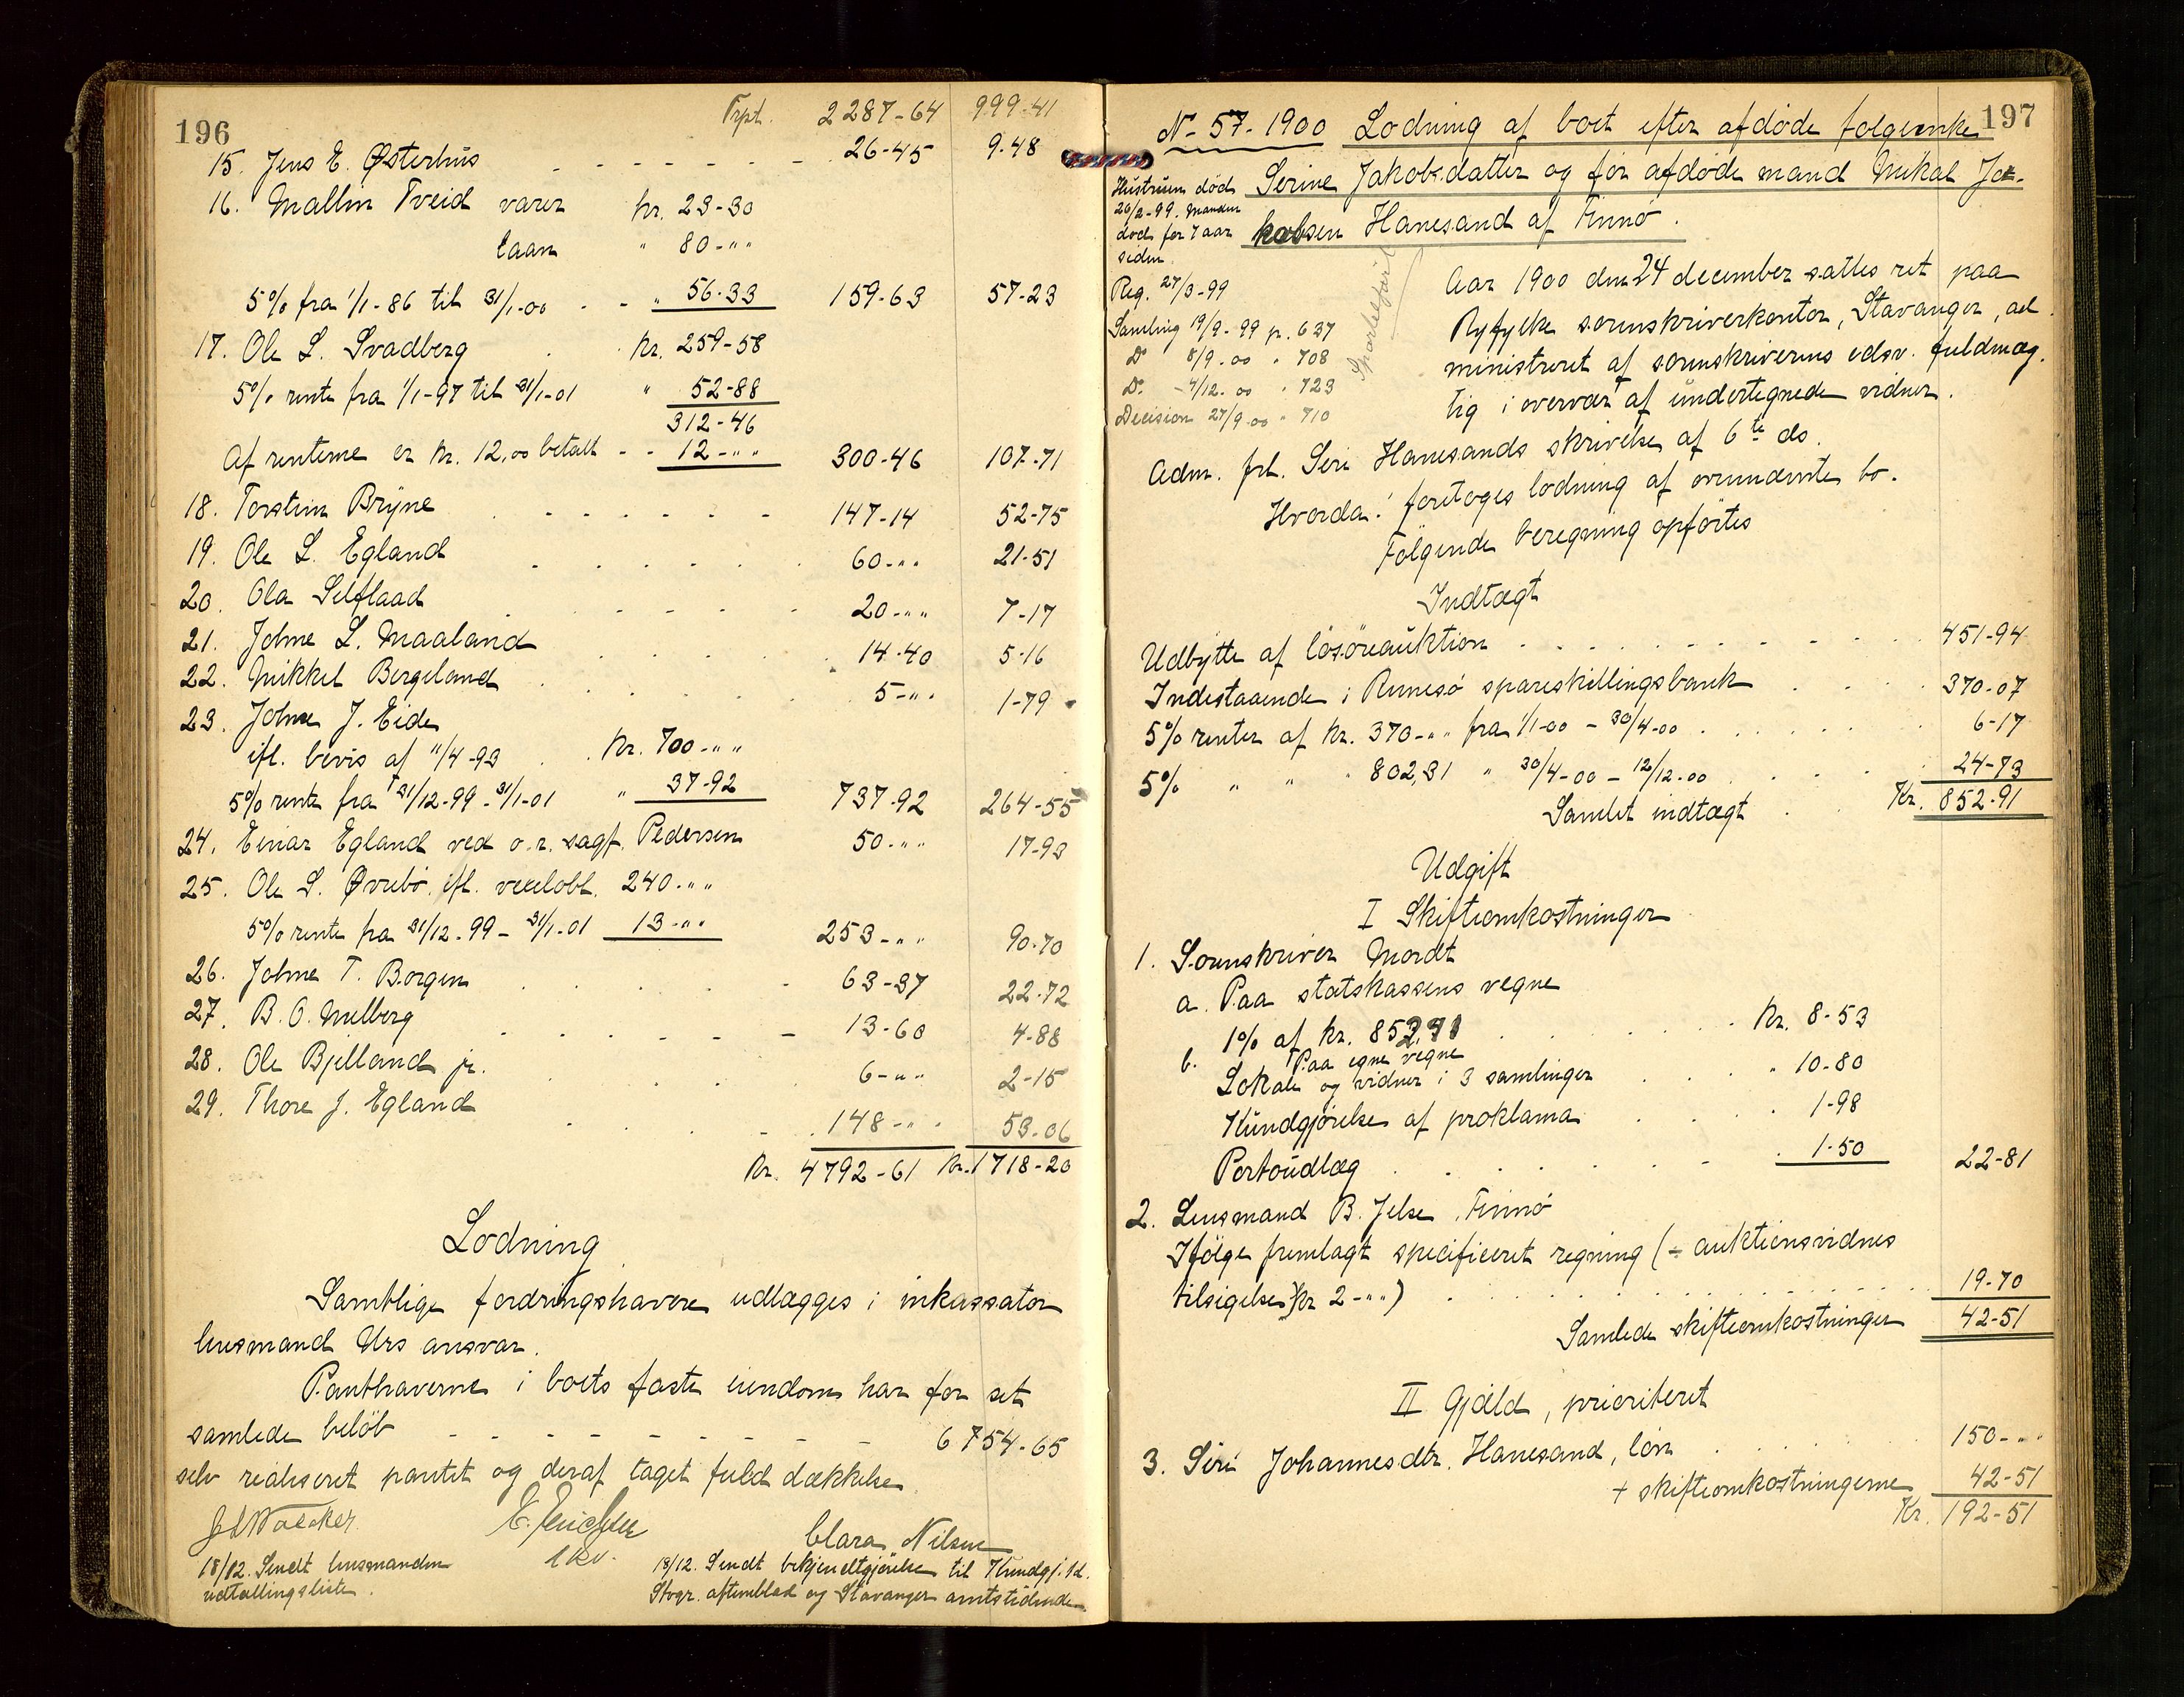 196
Trpt. 2287-64 999-41
15. Jens E. Østerhus - - - - - - 26-45 9-48
16. Mallin Tveid varer kr. 23-30
laan " 80-""
5% fra 1/1-86 til 31/1-00 - - " 56-33 159-63 57-23
17. Ole L. Svadberg kr. 259-58
5% rente fra 1/1-97 til 31/1-01 " 52-88
312-46
Af renterne er kr. 12,00 betalt - - 12-"" 300-46 107-71
18. Torstein Bryne - - - - - 147-14 52-75
19. Ole L. Egland - - - - - 60-"" 21-51
20. Ola Selflaad - - - - 20-"" 7-17
21. Johne L. Maaland 14-40 5-16
22. Mikkel Bergeland 5-"" 1-79
23. Johne J. Eide
ifl. bevis af 11/4-93 kr. 700-""
5% rente fra 31/12-99-31/1-01 " 37-92 737-92 264-55
24. Einar Egland ved o.r. sagf. Pedersen 50-"" 17-93
25. Ole S. Øvrebø, ifl. vexelobl. 240-""
5% rente fra 31/12-99-31/1-01 13-"" 253-"" 90-70
26. Johne T. Borgen 63-37 22-72
27. B. O. Melberg - - - - - 13-60 4-88
28. Ole Bjelland jr. 6-"" 2-15
29. Thore J. Egland 148-"" 53-06
Kr. 4792-61 Kr. 1718-20
Lodning
Samtlige fordringshavere udlægges i inkassator
lensmand Urs ansvar.
Panthaverne i boets faste eiendom har for sit
samlede beløb - - - - - - - 6754-65
selv realiseret pantet og deraf taget fuld dækkelse.
Clara Nilsen
18/12. Sendt lensmanden
udtællingsliste.
18/12. Sendt bekjendtgjørelse til Kundgj. td.
Stvgr. aftenblad og Stavanger amtstidende.
197
No 57-1900 Lodning af boet efter afdøde følgeenke
Serine Jakobsdatter og før afdøde mand Mikal Ja-
kobsen Hanesand af Finnø.
Hustruen død
20/2-99. Manden
død for 7 aar
siden.
Reg. 27/3-99
Samling 19/9-99 p. 637
Do 8/9.00 " 708
Do -4/12.00 " 723
Decision 27/9.00 " 710
Aar 1900 den 24 december sattes ret paa
Ryfylke sorenskriverkontor, Stavanger, ad
ministreret af sorenskriverens edsv. fuldmæg.
tig i overvær af undertegnede vidner.
Adm. frl. Siri Hanesands skrivelse af 6te ds.
Hvorda! foretoges lodning af ovennævnte bo.
Følgende beregning opførtes
Indtægt
Udbytte af løsøreauktion 451-94
Indestaaende i Rennesø spareskillingsbank 370-07
5% renter af kr. 370-"" fra 1/1-00 - 30/4-00 6-17
5% " " " 802,31 " 30/4-00 - 12/12-00 24-73
Samlet indtægt Kr. 852-91
Udgift
I Skifteomkostninger
1. Sorenskriver Mordt
a. Paa statskassens vegne
1% af kr. 852,91 Kr. 8-53
b. Paa egne vegne
Lokale og vidner i 3 samlinger " 10-80
Kundgjørelse af proklama 1-98
Portoudlæg 1-50 22-81
2. Lensmand B. Jelse, Finnø
Ifølge fremlagt specificeret regning (÷ auktionsvidnes
tilsigelse kr 2-"") 19-70
Samlede skifteomkostninger 42-51
II Gjæld, prioriteret
3. Siri Johannesdtr. Hanesand, løn 150-""
+ skifteomkostningerne 42-51
Kr. 192-51